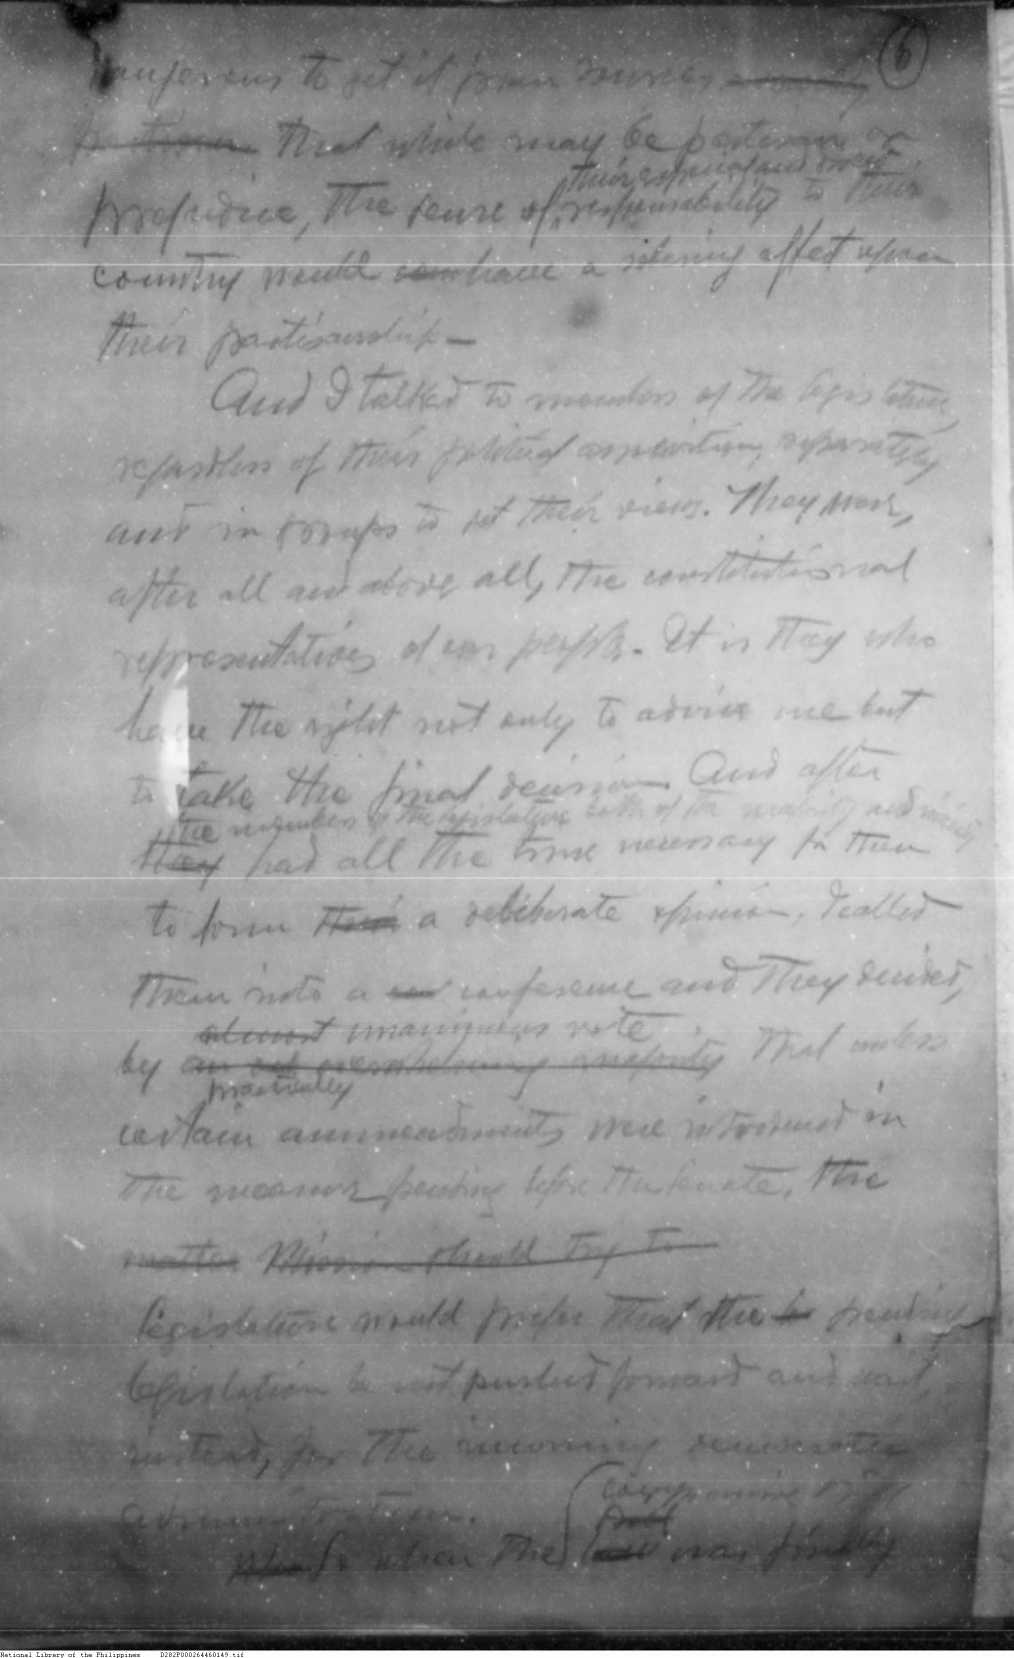 6
dangerous to get it from sources
that while may be partisan or
their express and direct
prejudice, the sense of responsability to their
country would have a sobering affect upon
their partisanship —
And I talked to members of the legislature,
regardless of their political association, separately
and in groups to get their views. They were,
after all and above all, the constitutional
representatives of our people. It is they who
have the right not only to advise me but
to take the final decision. And after
the members of the legislature both of the majority and minority
they had all the time necessary for them
to form their a deliberate opinion, I called
them into a conference and they decided,
almost unanimous vote
by an overwhelming majority that unless
practically
certain ammendments were introduced in
the measure pending before the Senate, the
matter Mission should try to
legislature would prefer that the pending
legislation be not pushed forward and wait,
instead, for the incoming democratic
administration.
compromise bill
bill
So when the was finally
National Library of the Philippines D282P000264460149.tif